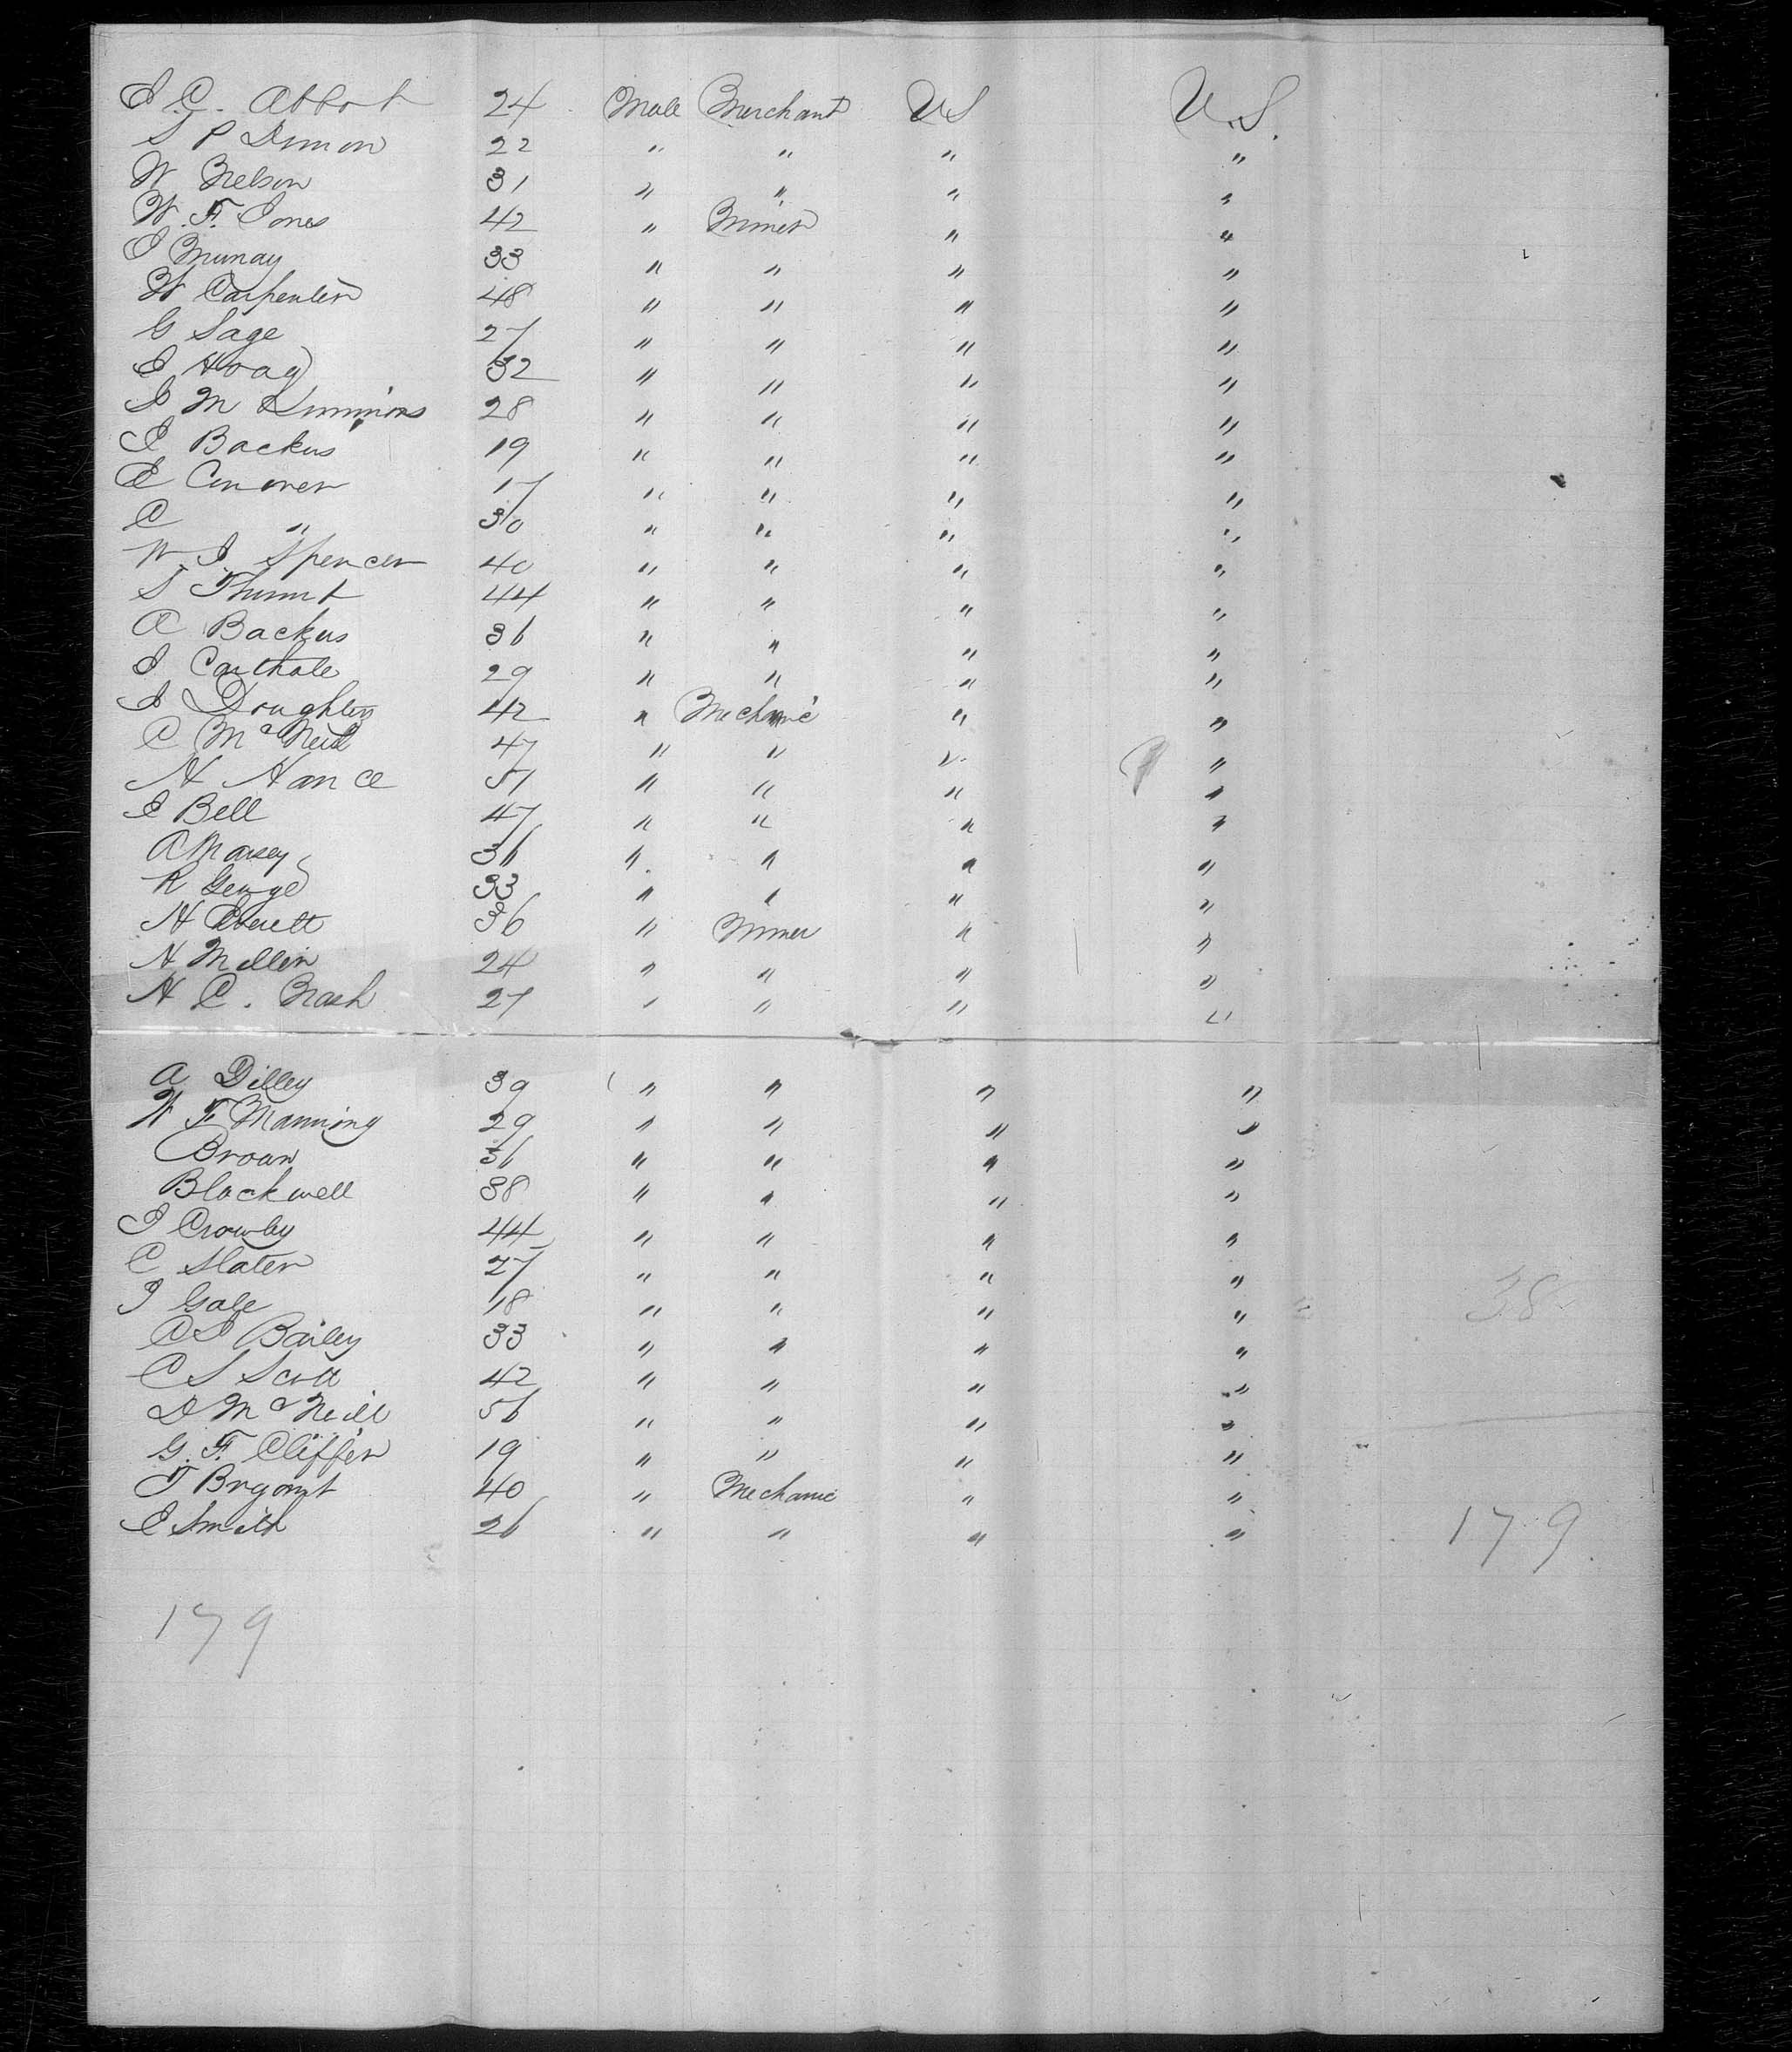 J. C. Abbot 24 Male Merchant US U.S.
S P Dimon 22 " " " "
W Nelson 31 " " " "
W. F. Jones 42 " Miner " "
J Murray 33 " " " "
W Carpenter 48 " " " "
G Sage 27 " " " "
J Hoag 32 " " " "
J M Simmons 28 " " " "
J Backus 19 " " " "
E Conover 17 " " " "
C " 30 " " " "
W. J. Spencer 40 " " " "
S 44 " " " "
A Backus 36 " " " "
J 29 " " " "
J Doughty 42 " Mechanic " "
C McNeil 47 " " " "
H Hance 51 " " " "
J Bell 47 " " " "
A Marsey 36 " " " "
R George 33 " " " "
H Everett 36 " Miner " "
H Mellin 24 " " " "
H C. Nash 27 " " " "
A Dilley 39 " " " "
W F Manning 29 " " " "
Brown 36 " " " "
Blackwell 38 " " " "
J Crowley 44 " " " "
C Slater 27 " " " "
J Gale 18 " " " "
38
C J Bailey 33 " " " "
C S Scott 42 " " " "
D McNeill 56 " " " "
G. F. Cliffer 19 " " " "
T Bryant 40 " Mechanic " "
E Smith 26 " " " "
179
179